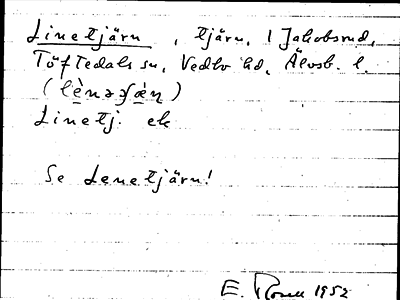 Linetjärn , tjärn, 1 Jakobsrud,
Töftedals sn, Vedbo hd, Älvsb. l.
Linetj. ek
Se Lenetjärn!
E. 1952